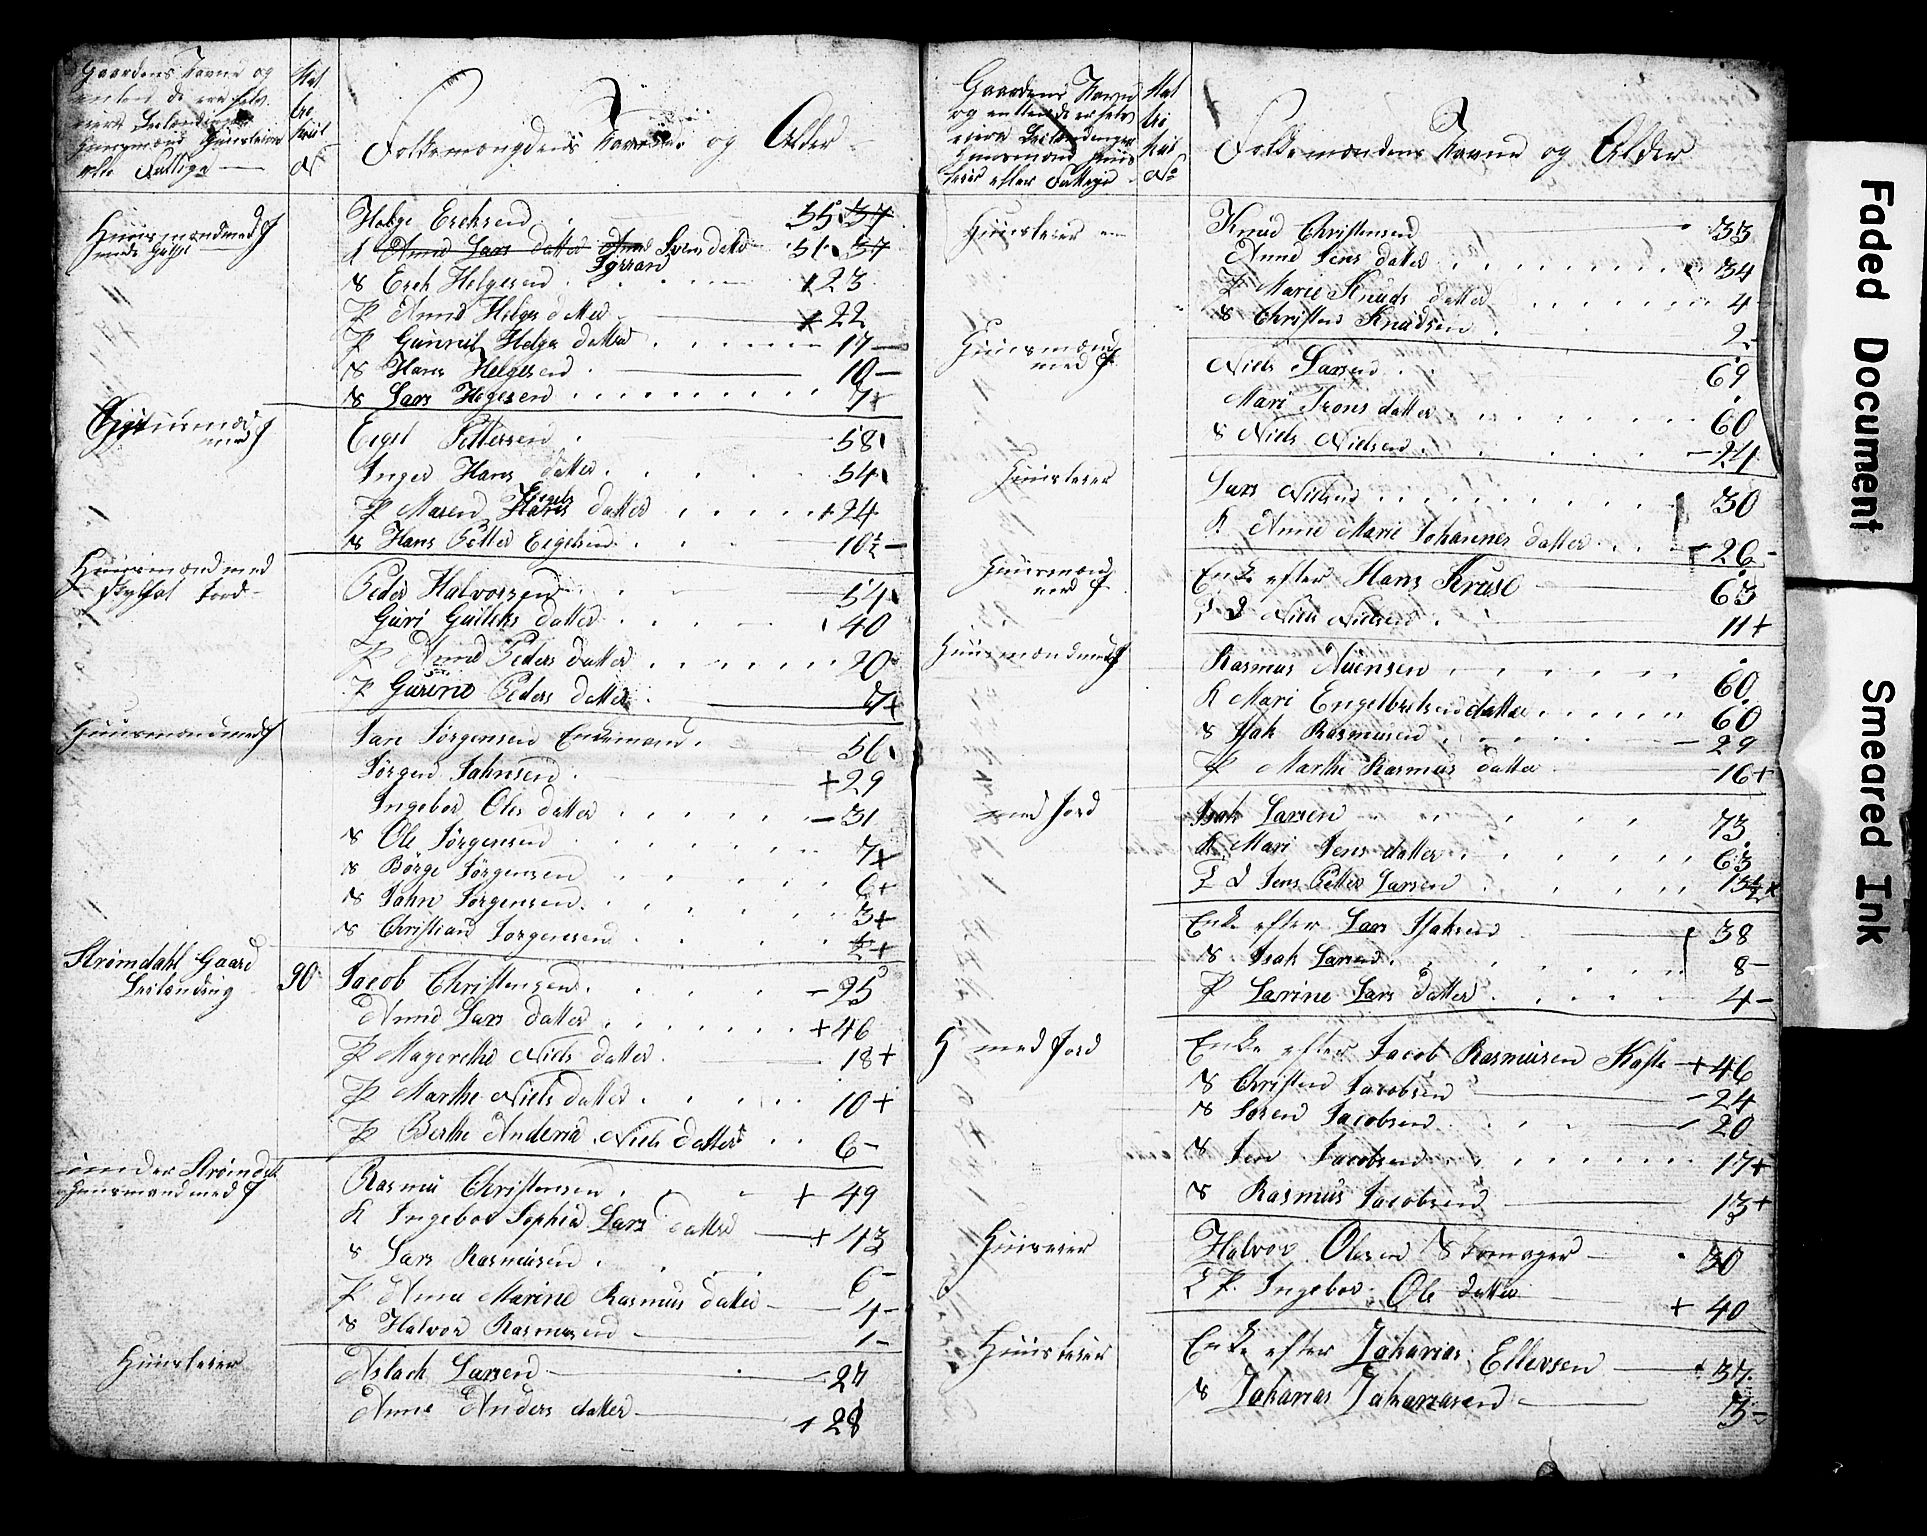 Gaardens Navne og
enten de ere selv
eiere Leilændinge
Huusmænd Huusleiere
eller Fattige
Mat
tre
kuul
No
Folkemængdens Navne og Alder
Huusmand med J
Helge Erichsen 55 37
K Anne Lars datter Anne Svens datter 51 37
Torran
S Erich Helgesen 23
P Anne Helges datter 22
P Gunnil Helge datter 17
S Hans Helgesen 10
S Lars Hegesen 7
Huusmand
med J
Engel Pettersen 58
Inger Hans datter 54
Engels
P Maren Hans datter + 24
S Hans Petter Engelsen 10½
Huusmand med
Jord
Peder Halvorsen 54
Guri Gulleks datter 40
P Anne Peders datter 20
P Gurine Peders datter 7+
Huusmand med J
Jan Jörgensen Enkemand 56
Jörgen Jahnsen +29
Ingebor Oles datter 31
S Ole Jörgensen 7+
S Börge Jörgensen 6+
S Jahn Jörgensen 3+
S Christian Jorgensen ½+
Strømdahl Gaard
Leilænding
90
Jacob Christensen 25
Anne Lars datter +46
P Magrethe Niels datter 18+
P Marthe Niels datter 10+
P Berthe Andrea Niels datter 6
under Strømdahl
Huusmand med J
Rasmus Christensen + 49
K Ingebor Sophia Lars datter + 43
S Lars Rasmusen 6
P Anne Marine Rasmus datter 4
S Halvor Rasmusen 1
Huusleier
Aslach Larsen 27
Anne Anders datter + 28
Gaardens Navne
og enten de er selv
eiere Leilændinger
Huusmænd Huus
leier eller Fattige
Mat
tri
kul
No
Folkemændens Navne og Alder
Huusleier
Knud Christensen 33
Anne Jens datter 34
P Marie Knuds datter 4
S Christen Knudsen 2
Huusmand
med J
Niels Larsen 69
Mari Trons datter 60
S Niels Nielsen 24
Huusleier
Lars Nielsen 30
K Anne Marie Johannes datter 26
Huusmand
med J
Enke efter Hans Kruse 63
P D Niels Nielsen 11+
Huusmand med J
Rasmus 60
K Mari Engelbretsen datter 60
S Isak Rasmusen 29
P Marthe Rasmus datter 16+
med Jord
Isak Larsen 73
K Mari Jens datter 63
P D Jens Petter Larsen 13½+
Enke efter Lars Isaksen 38
S Isak Larsen 8
P Larine Lars datter 4
H med Jord
Enke efter Jacob Rasmusen Kaste +46
S Christen Jacobsen 24
S Soren Jacobsen 20
S Jen Jacobsen 17+
S Rasmus Jacobsen 13+
Huuseier
Halvor Olesen Skomager 30
P Ingebor Ole datter + 40
Huusleier
Enke efter Zakarias Ellevsen 37
S Zakarias Zakariasen 3
Faded Document
Smeared Ink